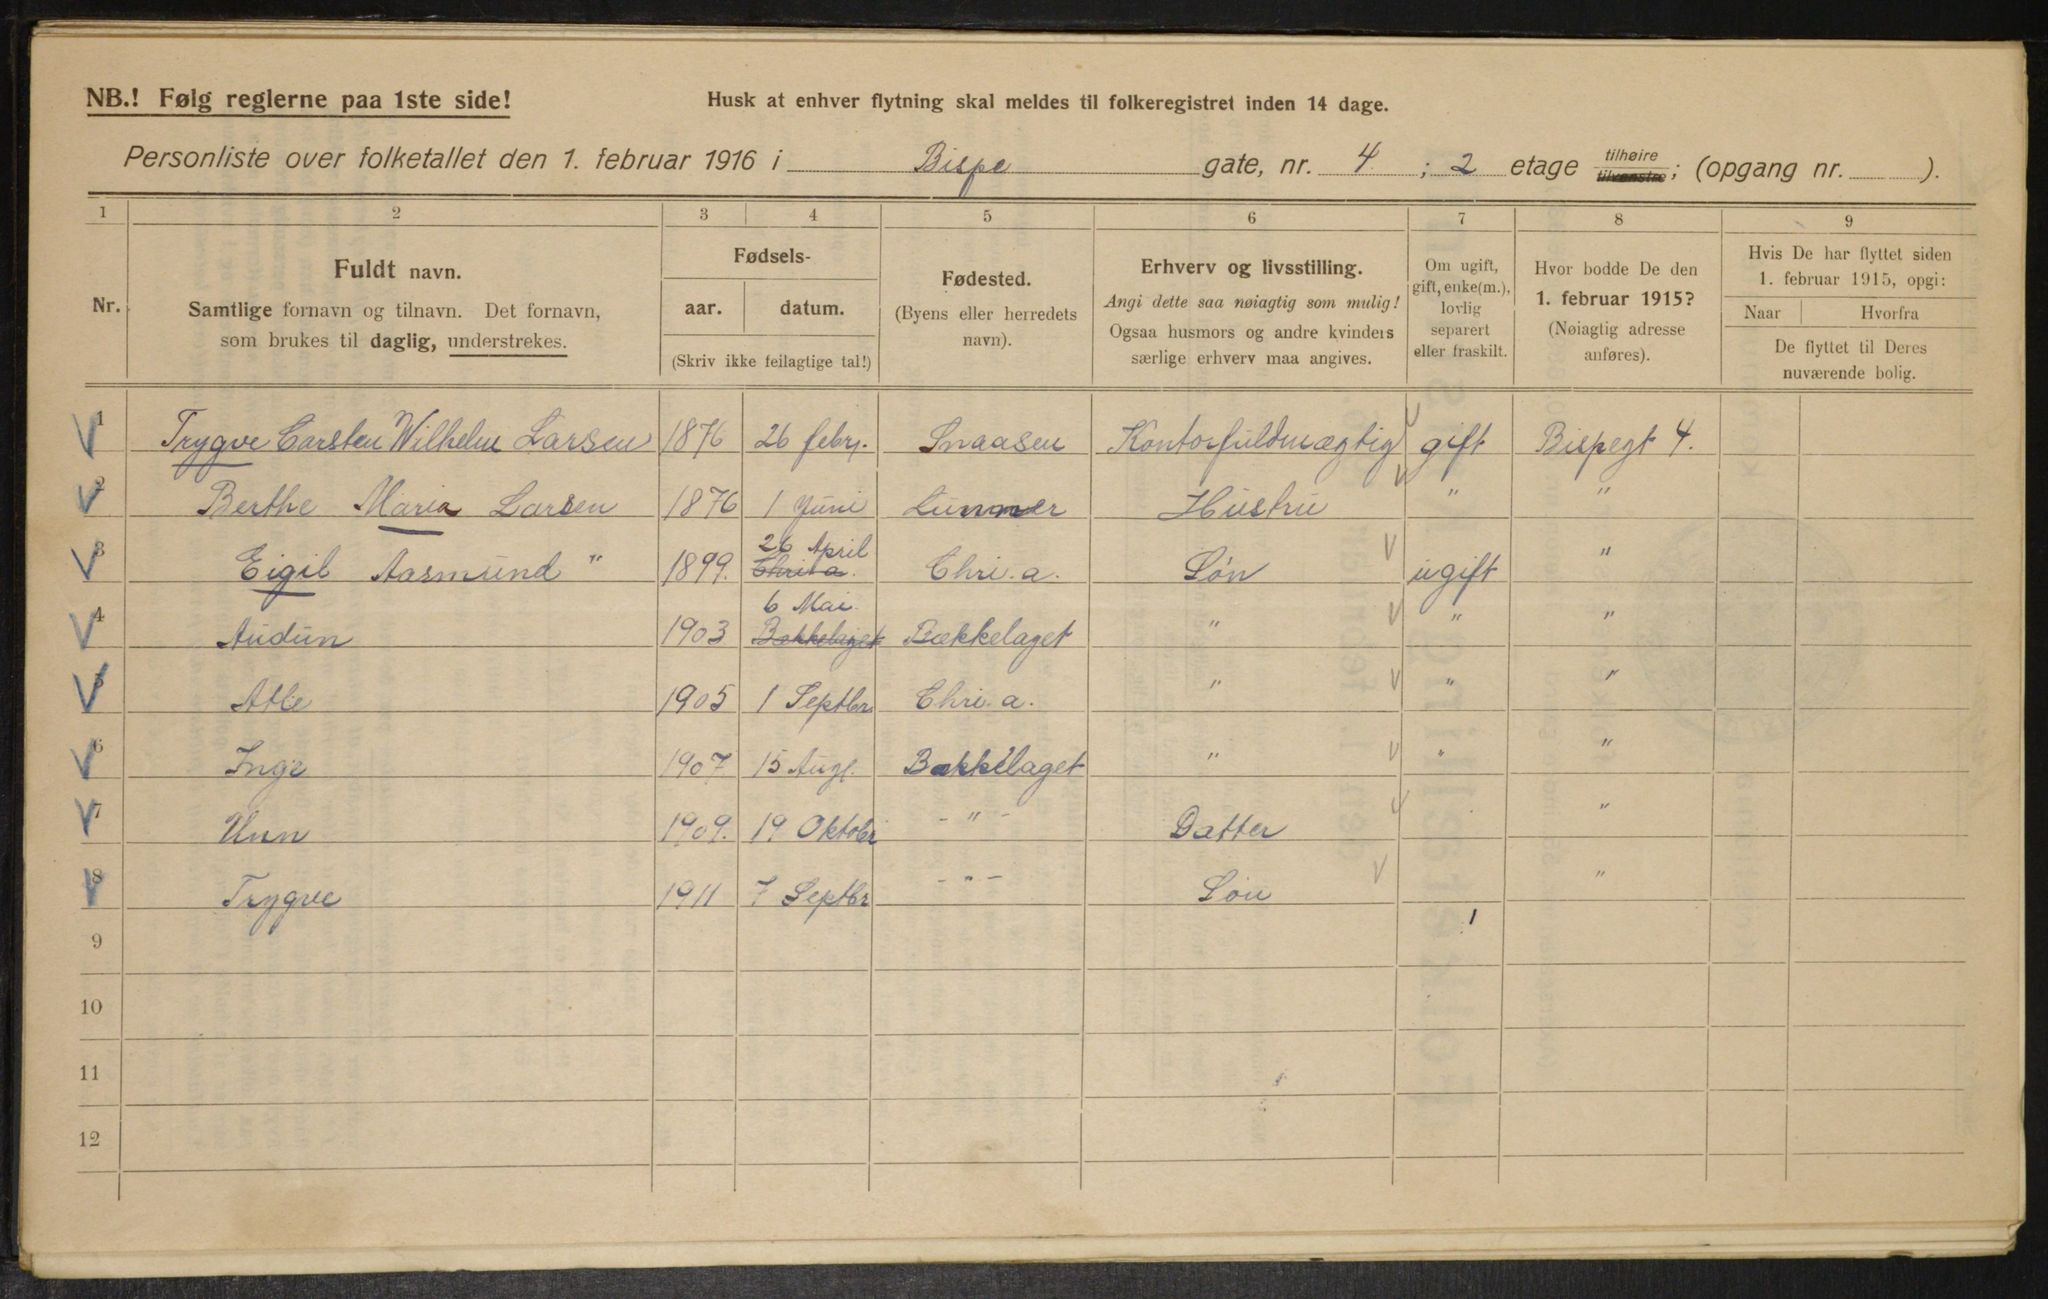 NB.! Følg reglerne paa 1ste side! Husk at enhver flytning skal meldes til folkeregistret inden 14 dage.
Personliste over folketallet den 1. februar 1916 i Bispe gate, nr. 4 ; 2 etage tilhøire tilvenstre ; (opgang nr. ).
1 2 3 4 5 6 7 8 9
Nr.
Fuldt navn.
Samtlige fornavn og tilnavn. Det fornavn,
som brukes til daglig, understrekes.
Fødsels-
aar. datum.
(Skriv ikke feilagtige tal!)
Fødested.
(Byens eller herredets
navn).
Erhverv og livsstilling.
Angi dette saa nøiagtig som mulig!
Ogsaa husmors og andre kvinders
særlige erhverv maa angives.
Om ugift,
gift, enke(m.),
lovlig
separert
eller fraskilt.
Hvor bodde De den
1. februar 1915?
(Nøiagtig adresse
anføres).
Hvis De har flyttet siden
1. februar 1915, opgi:
Naar Hvorfra
De flyttet til Deres
nuværende bolig.
1 Trygve Carsten Wilhelm Larsen 1876 26 febr. Snaasen Kontorfuldmægtig gift Bispegt 4.
2 Berthe Maria Larsen 1876 1 Juni Lunner Hustru " "
3 Eigil Aasmund " 1899. 26 April Chria. Chri.a. Søn ugift "
4 Audun 1903 6 Mai. Bækkelaget Bækkelaget " " "
5 Atle 1905 1 Septbr Chri.a. " " "
6 Inge 1907 15 Aug. Bækkelaget " " "
7 Unn 1909. 19 Oktobr - " - Datter "
8 Trygve 1911 7 Septbr - " - Søn "
9
10
11
12